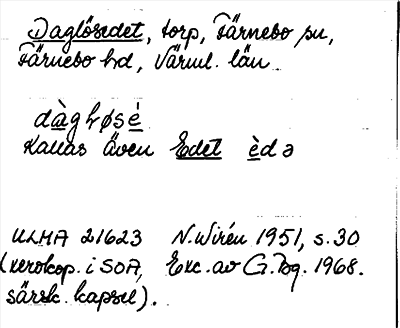 Daglösedet, torp, Färnebo sn,
Färnebo hd, Värml. län
dàgløsé
Kallas även Edet èdə
ULMA 21623 N. Wirén 1951, s. 30
(xerokop. i SOA, Exc. av G. Bg. 1968.
särsk. kapsel).